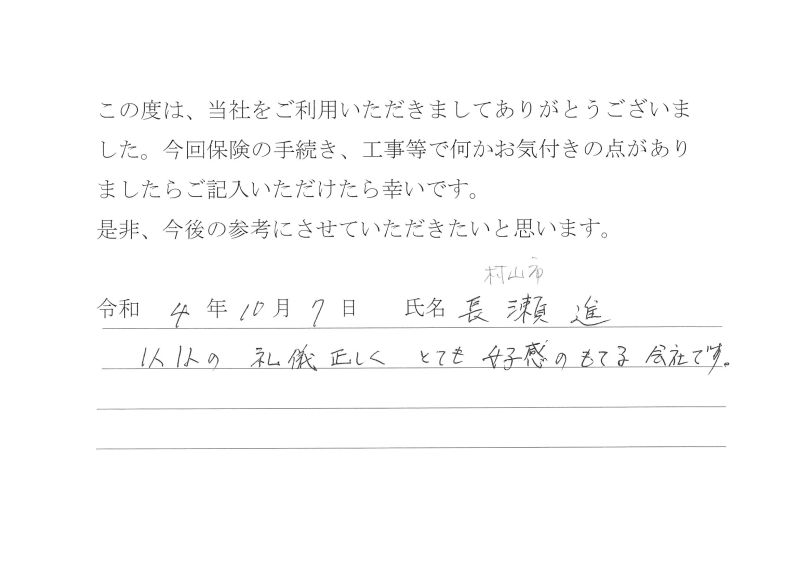 この度は、当社をご利用いただきましてありがとうございま
した。今回保険の手続き、工事等で何かお気付きの点があり
ましたらご記入いただけたら幸いです。
是非、今後の参考にさせていただきたいと思います。
村山市
令和 4 年 10 月 7 日 氏名 長瀬 進
1人1人の 礼儀正しく とても 好感のもてる 会社です。